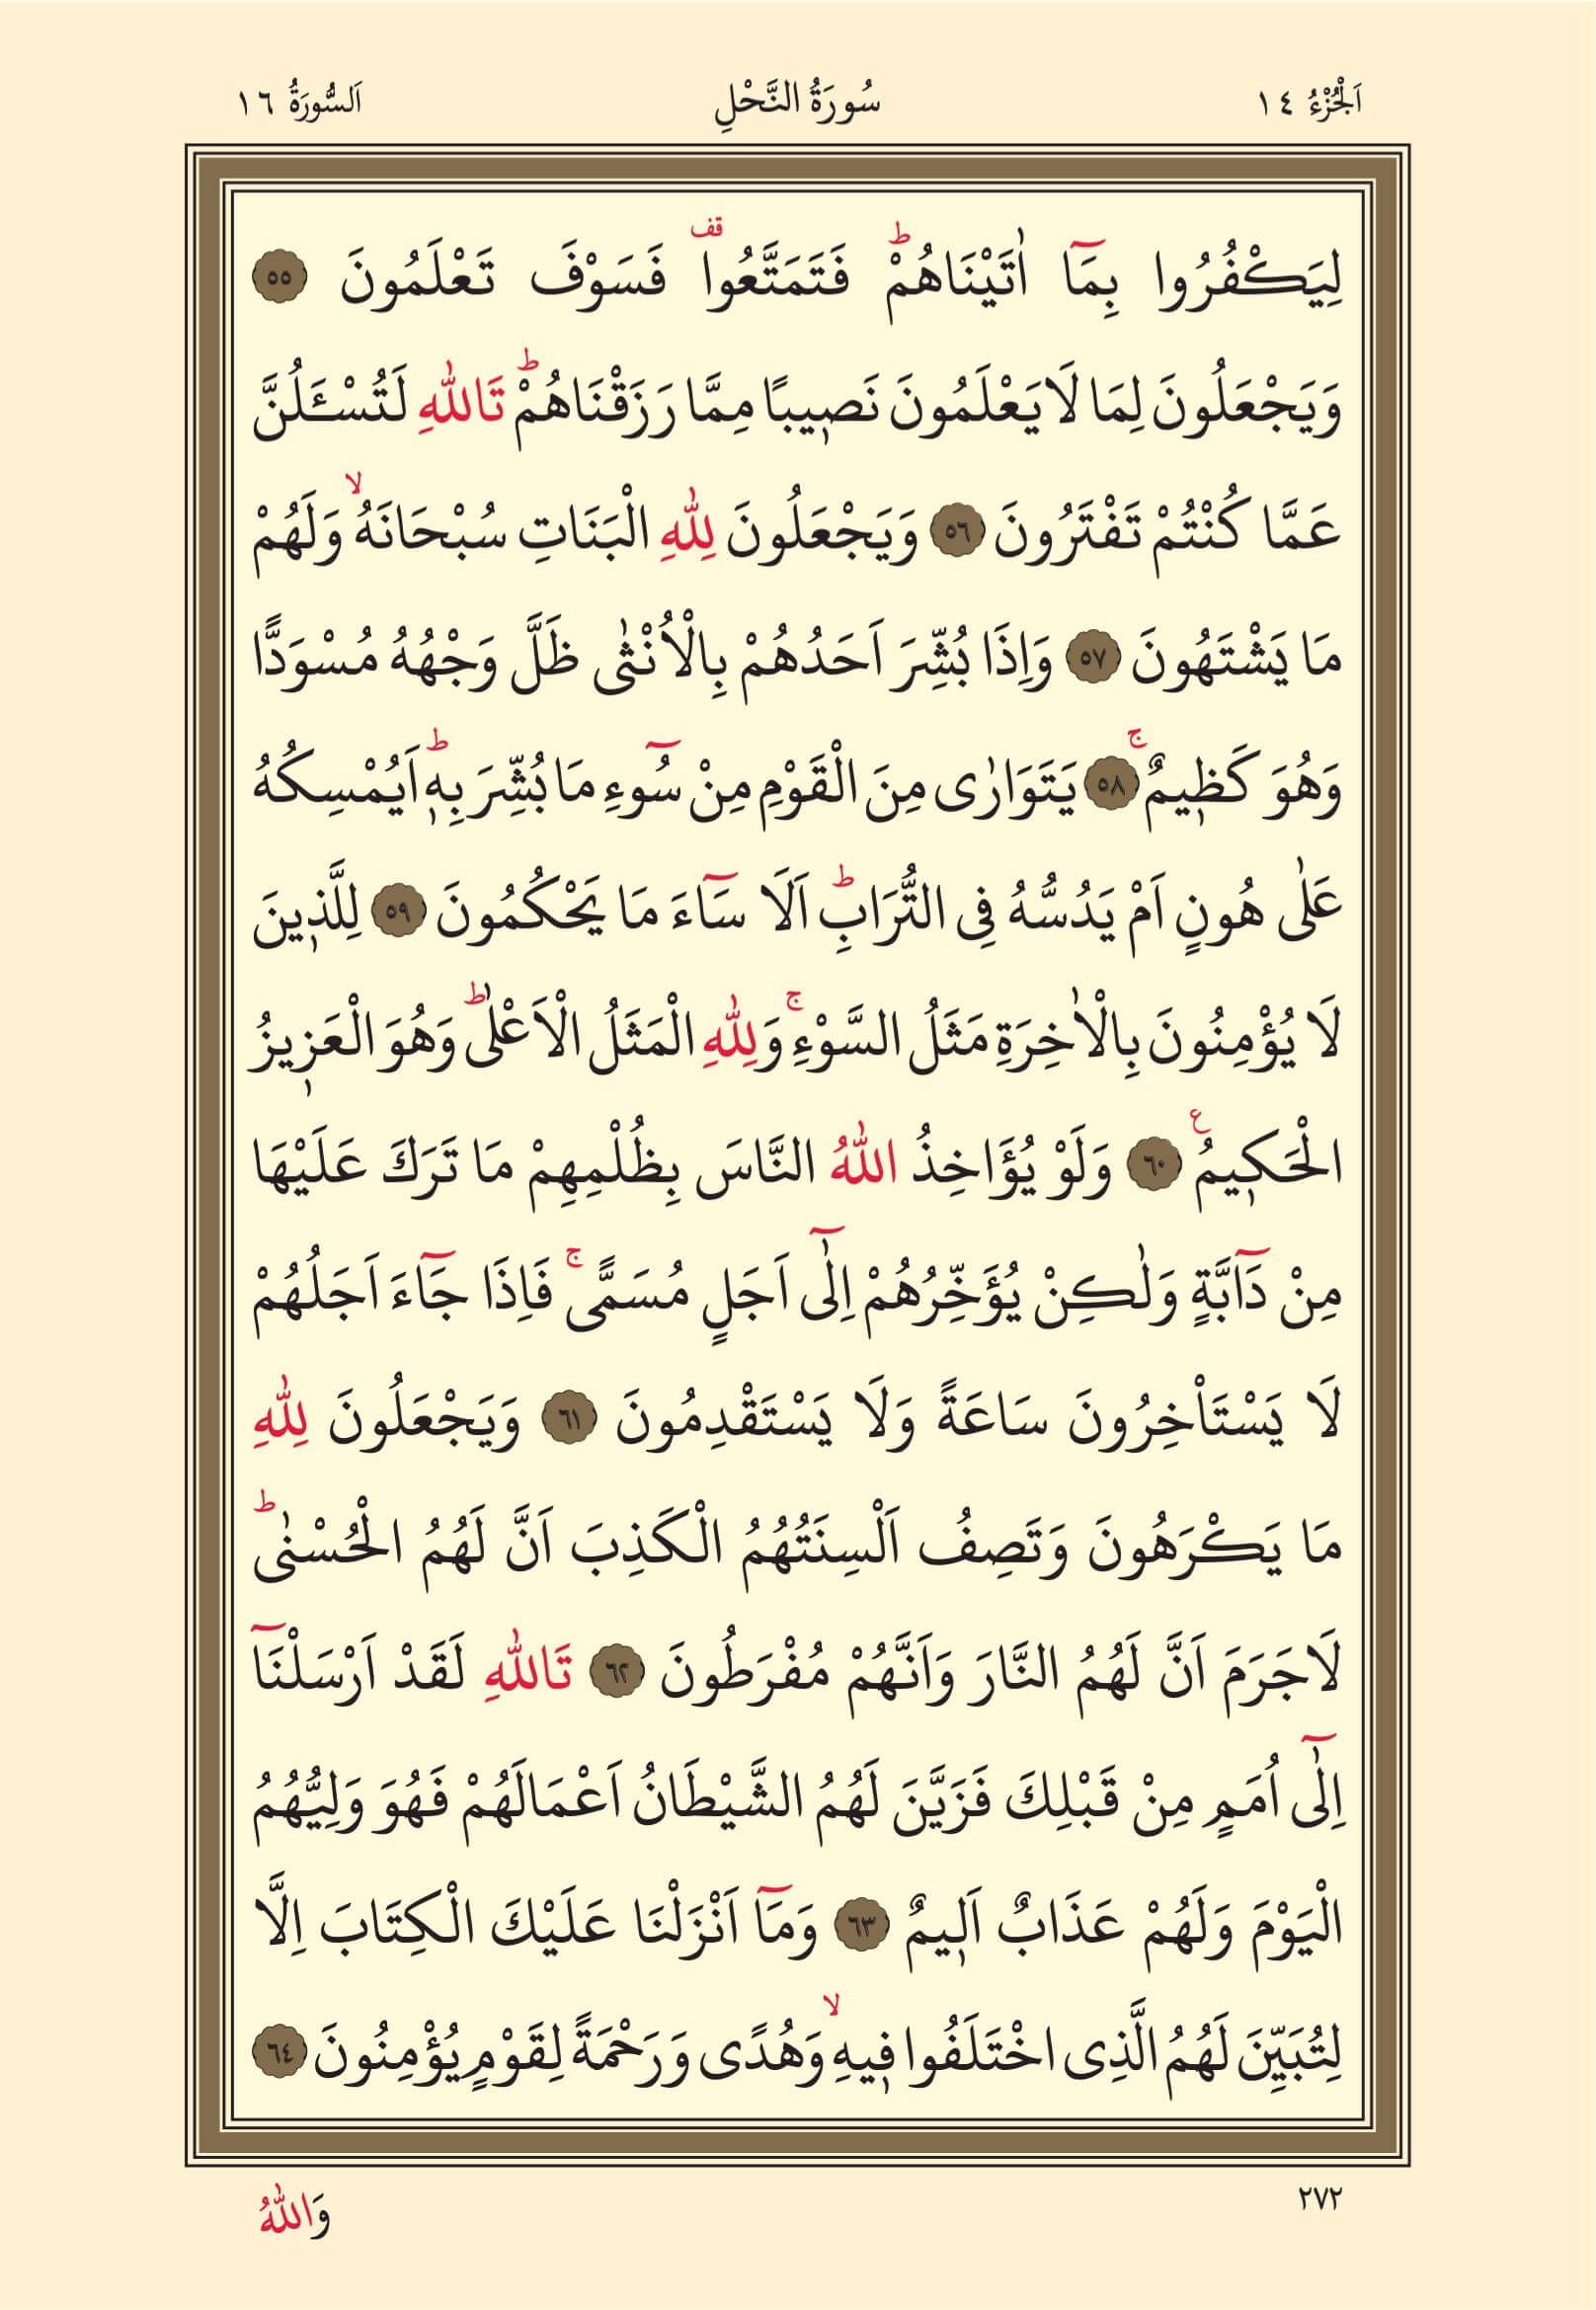 اَلْجُزْءُ ١٤ سُورَةُ النَّحْلِ اَلسُّورَةُ ١٦
لِيَكْفُرُوا بِمَٓا اٰتَيْنَاهُمْۜ فَتَمَتَّعُوا۠ فَسَوْفَ تَعْلَمُونَ ﴿٥٥﴾
وَيَجْعَلُونَ لِمَا لَا يَعْلَمُونَ نَص۪يبًا مِمَّا رَزَقْنَاهُمْۜ تَاللّٰهِ لَتُسْـَٔلُنَّ
عَمَّا كُنْتُمْ تَفْتَرُونَ ﴿٥٦﴾ وَيَجْعَلُونَ لِلّٰهِ الْبَنَاتِ سُبْحَانَهُۙ وَلَهُمْ
مَا يَشْتَهُونَ ﴿٥٧﴾ وَاِذَا بُشِّرَ اَحَدُهُمْ بِالْاُنْثٰى ظَلَّ وَجْهُهُ مُسْوَدًّا
وَهُوَ كَظ۪يمٌۚ ﴿٥٨﴾ يَتَوَارٰى مِنَ الْقَوْمِ مِنْ سُٓوءِ مَا بُشِّرَ بِه۪ۜ اَيُمْسِكُهُ
عَلٰى هُونٍ اَمْ يَدُسُّهُ فِى التُّرَابِۜ اَلَا سَٓاءَ مَا يَحْكُمُونَ ﴿٥٩﴾ لِلَّذ۪ينَ
لَا يُؤْمِنُونَ بِالْاٰخِرَةِ مَثَلُ السَّوْءِۚ وَلِلّٰهِ الْمَثَلُ الْاَعْلٰىۜ وَهُوَ الْعَز۪يزُ
الْحَك۪يمُ۟ ﴿٦٠﴾ وَلَوْ يُؤَاخِذُ اللّٰهُ النَّاسَ بِظُلْمِهِمْ مَا تَرَكَ عَلَيْهَا
مِنْ دَٓابَّةٍ وَلٰكِنْ يُؤَخِّرُهُمْ اِلٰٓى اَجَلٍ مُسَمًّىۚ فَاِذَا جَٓاءَ اَجَلُهُمْ
لَا يَسْتَأْخِرُونَ سَاعَةً وَلَا يَسْتَقْدِمُونَ ﴿٦١﴾ وَيَجْعَلُونَ لِلّٰهِ
مَا يَكْرَهُونَ وَتَصِفُ اَلْسِنَتُهُمُ الْكَذِبَ اَنَّ لَهُمُ الْحُسْنٰىۜ
لَاجَرَمَ اَنَّ لَهُمُ النَّارَ وَاَنَّهُمْ مُفْرَطُونَ ﴿٦٢﴾ تَاللّٰهِ لَقَدْ اَرْسَلْنَٓا
اِلٰٓى اُمَمٍ مِنْ قَبْلِكَ فَزَيَّنَ لَهُمُ الشَّيْطَانُ اَعْمَالَهُمْ فَهُوَ وَلِيُّهُمُ
الْيَوْمَ وَلَهُمْ عَذَابٌ اَل۪يمٌ ﴿٦٣﴾ وَمَٓا اَنْزَلْنَا عَلَيْكَ الْكِتَابَ اِلَّا
لِتُبَيِّنَ لَهُمُ الَّذِى اخْتَلَفُوا ف۪يهِۙ وَهُدًى وَرَحْمَةً لِقَوْمٍ يُؤْمِنُونَ ﴿٦٤﴾
٢٧٢ وَاللّٰهُ